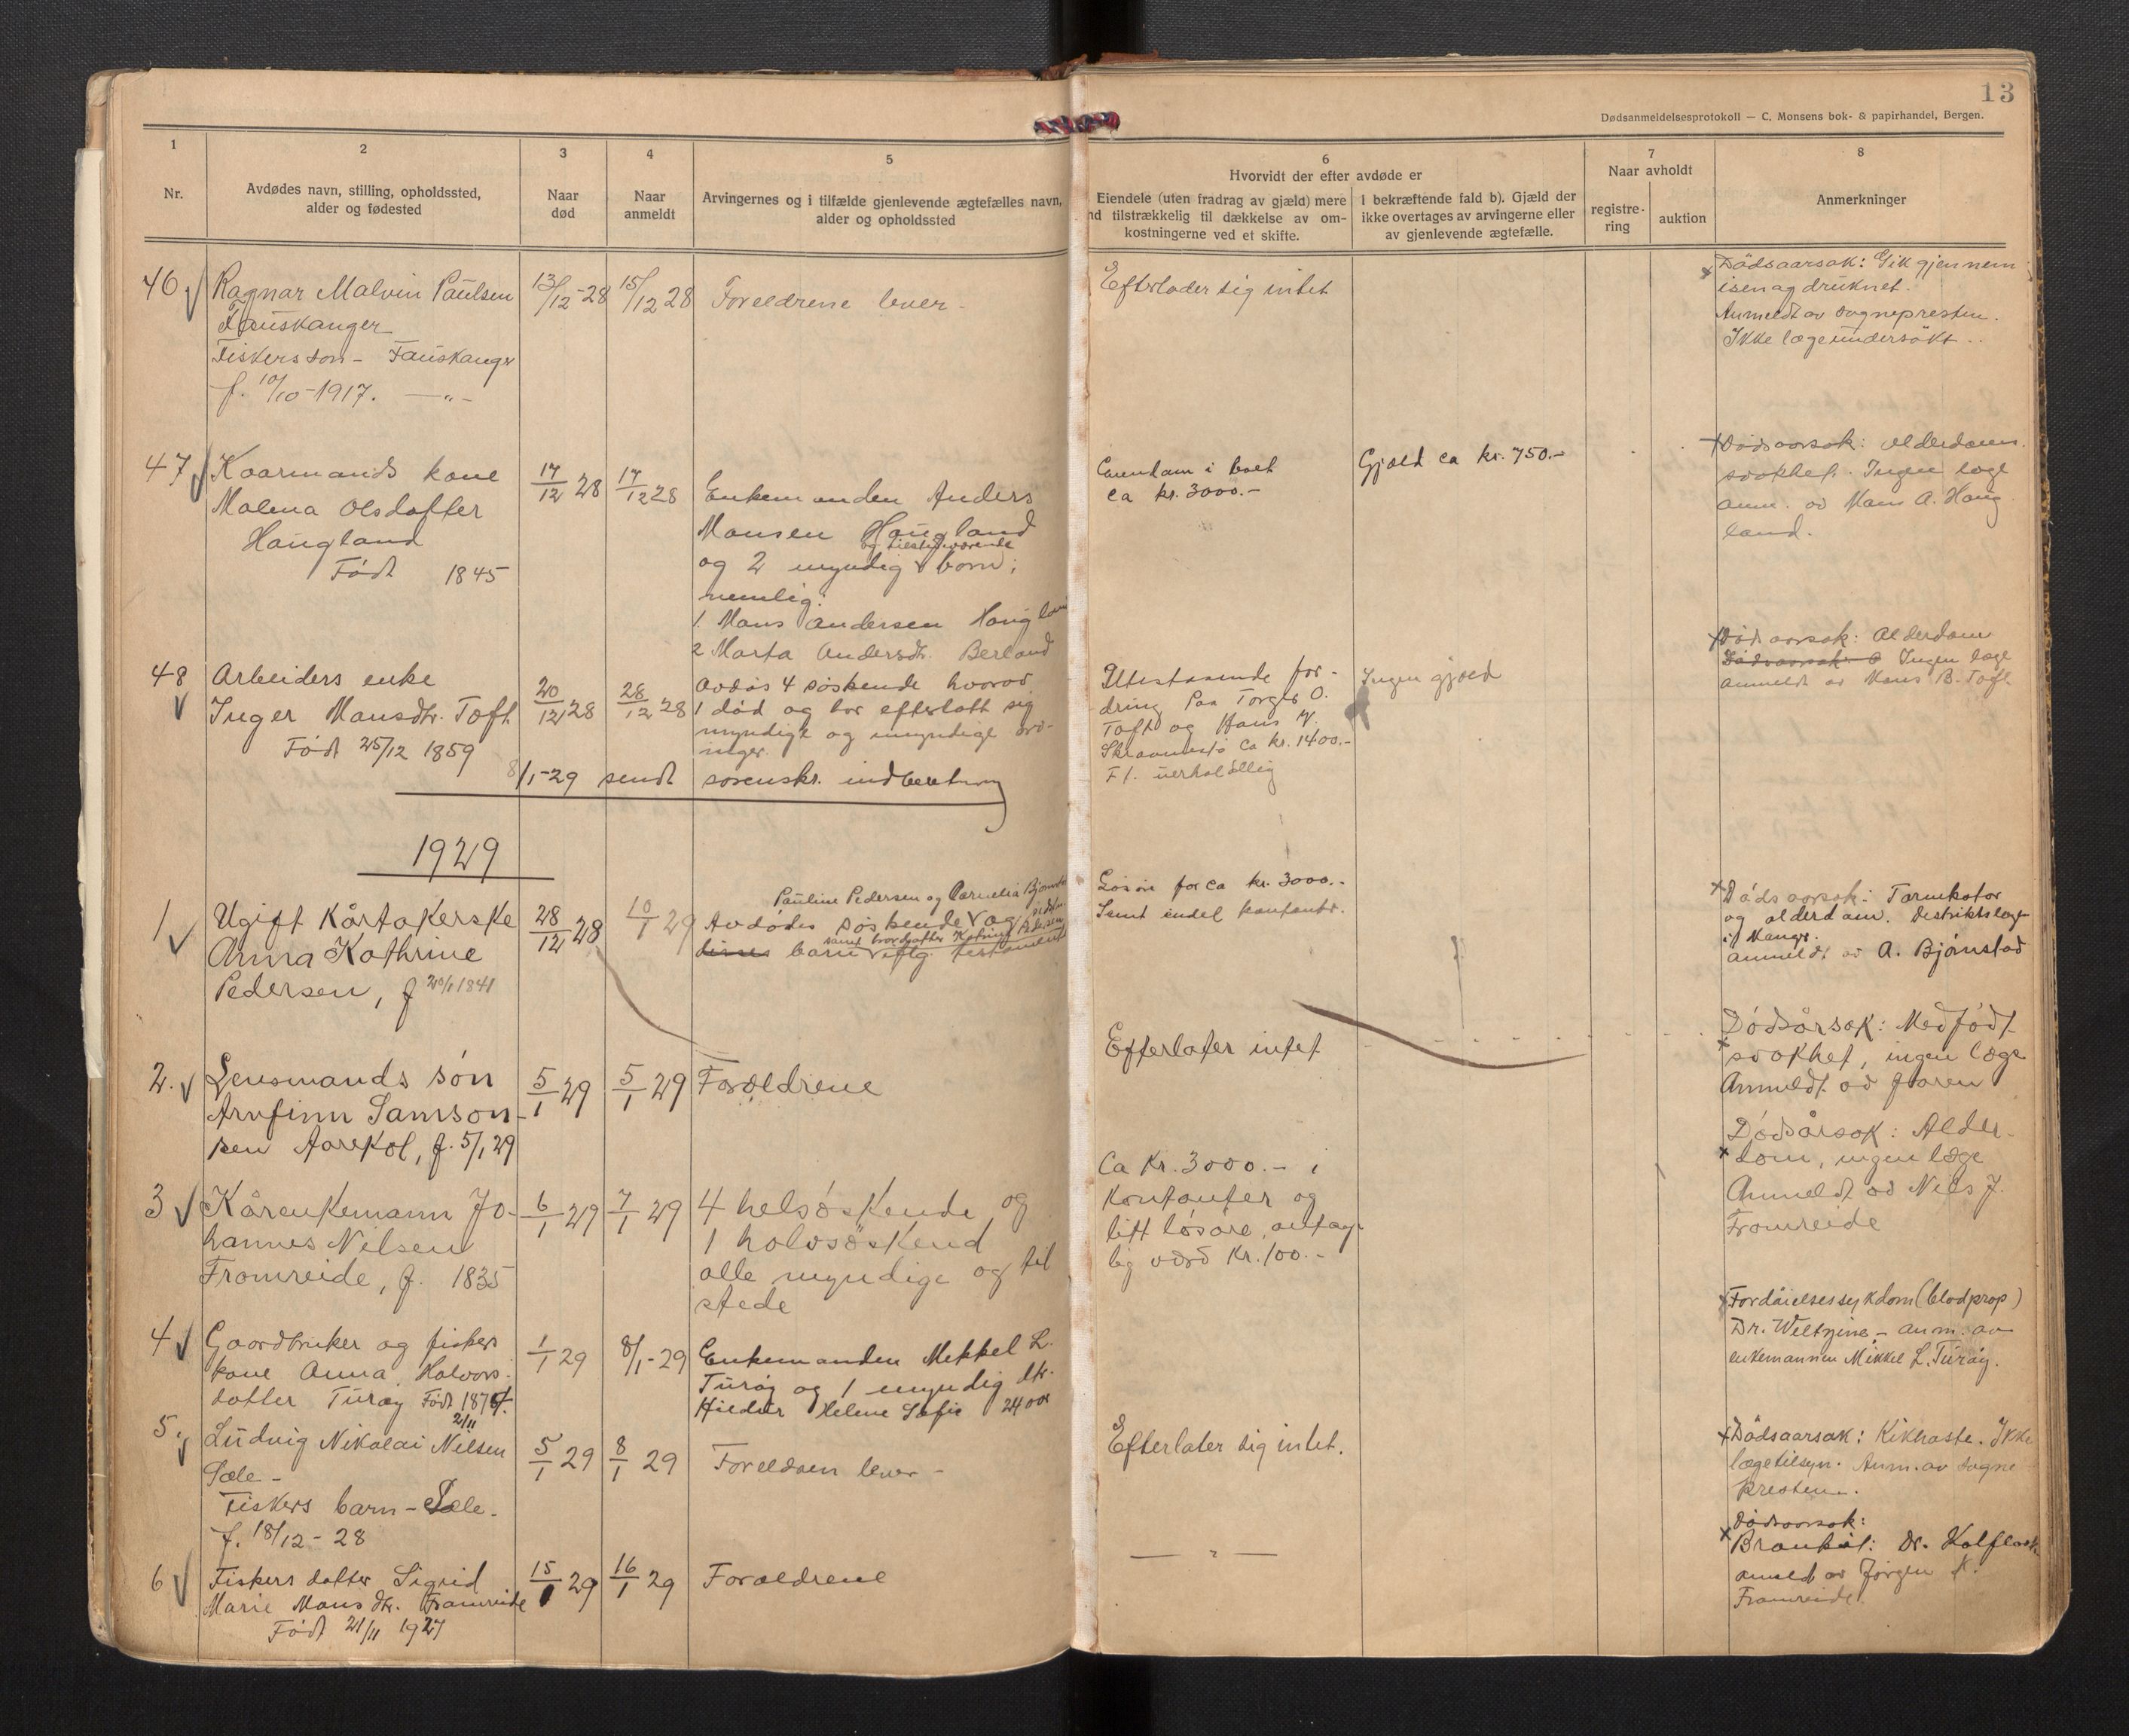 13
Dødsanmeldelsesprotokoll — C. Monsens bok- & papirhandel, Bergen.
1
Nr.
2
Avdødes navn, stilling, opholdssted,
alder og fødested
3
Naar
død
4
Naar
anmeldt
5
Arvingernes og i tilfælde gjenlevende ægtefælles navn,
alder og opholdssted
6
Hvorvidt der efter avdøde er
Eiendele (uten fradrag av gjæld) mere
nd tilstrækkelig til dækkelse av om-
kostningerne ved et skifte.
I bekræftende fald b). Gjæld der
ikke overtages av arvingerne eller
av gjenlevende ægtefælle.
7
Naar avholdt
registre-
ring
auktion
8
Anmerkninger
46
Ragnar Malvin Paulsen
Fauskanger
Fiskers søn - Fauskanger
f. 10/10-1917. —"-
13/12-28
15/12 28
Foreldrene lever -
Efterlader sig intet
Dödsaarsak: Gik gjennem
isen og druknet.
Anmeldt av sognepresten.
Ikke lægeundersökt.
47
Kaarmands kone
Malena Olsdatter
Haugland
Født 1845
17/12 28
17/12 28
Enkemanden Anders
Monsen Haugland
og tilstedeværende
og 2 myndig børn;
nemlig:
1. Mons Andersen Haugland
2 Marta Andersdtr. Berland
Eiendom i boet
ca kr. 3000.-
Gjæld ca kr. 750.-
Dødsaarsak: Alderdoms
svakhet. Ingen læge
anm. av Mons A. Haug
land.
48
Arbeiders enke
Inger Monsdtr. Toft
Født 25/12 1859
20/12 28
28/12 28
Avdøs 4 søskende hvorav
1 død og har efterlatt sig
myndige og umyndige arv-
inger.
Utestaaende for-
dring Paa Torger O.
Toft og Hans
ca kr. 1400.-
Ingen gjæld
Dødsaarsak: Alderdom
Dødsaarsak Ingen læge
anmeldt av Mons B. Toft
8/1-29 sendt sorenskr. indberetning
1929
1
Ugift Kårtakerske
Anna Kathrine
Pedersen, f 20/1 1841
28/12 28
10/1 29
Pauline Pedersen og Cornelia Bjørnstad
Avdødes søskende og
samt brordatter Pedersen
disses barn iflg. testament
Løsøre for ca kr. 3000.-
Samt endel kontanter.
Dødsaarsak: Tarmkatar
og alderdom. Distriktslæge
i Manger.
anmeldt av A. Bjørnstad
2.
Lensmands søn
Arnfinn Samson-
sen Aarekol, f. 5/1 29
5/1 29
5/1 29
Forældrene
Efterlater intet
Dødsårsak: Medfødt
svakhet, ingen læge
Anmeldt av faren
3
Kårenkemann Jo-
hannes Nilsen
Fromreide, f. 1835
6/1 29
7/1 29
4 helsøskende og
1 halvsøskend
alle myndige og til
stede
Ca Kr. 3000.- i
Kontanter og
litt løsøre, antage
lig værd Kr. 100.-
Dødsårsak: Alder-
dom, ingen læge
Anmeldt av Nils J.
Fromreide
4
Gaardbruker og fiskers
kone Anna Halvors-
datter Turøy Født 1874
2/11
1/1 29
8/1-29
Enkemanden Mikkel L.
Turøy og 1 myndig dtr.
Helene Sofie 24 aar
Fordøielsessykdom (blodprop)
Dr. - anm. av
enkemannen Mikkel L. Turøy.
5
Ludvig Nikolai Nilsen
Sæle -
Fiskers barn - Sæle.
f. 18/12-28
5/1 29
8/1 29
Foreldren lever -
Efterlater sig intet.
Dödsaarsak: Kikhoste. Ikke
lægetilsyn. Anm. av sogne
presten.
6
Fiskers datter Sigrid
Marie Monsdtr. Framreide
Født 21/11 1927
15/1 29
16/1 29
Forældrene
— " —
Dødsaarsak:
Bronkit: Dr. Kalfloss
anmeldt av Jørgen K.
Framreide.